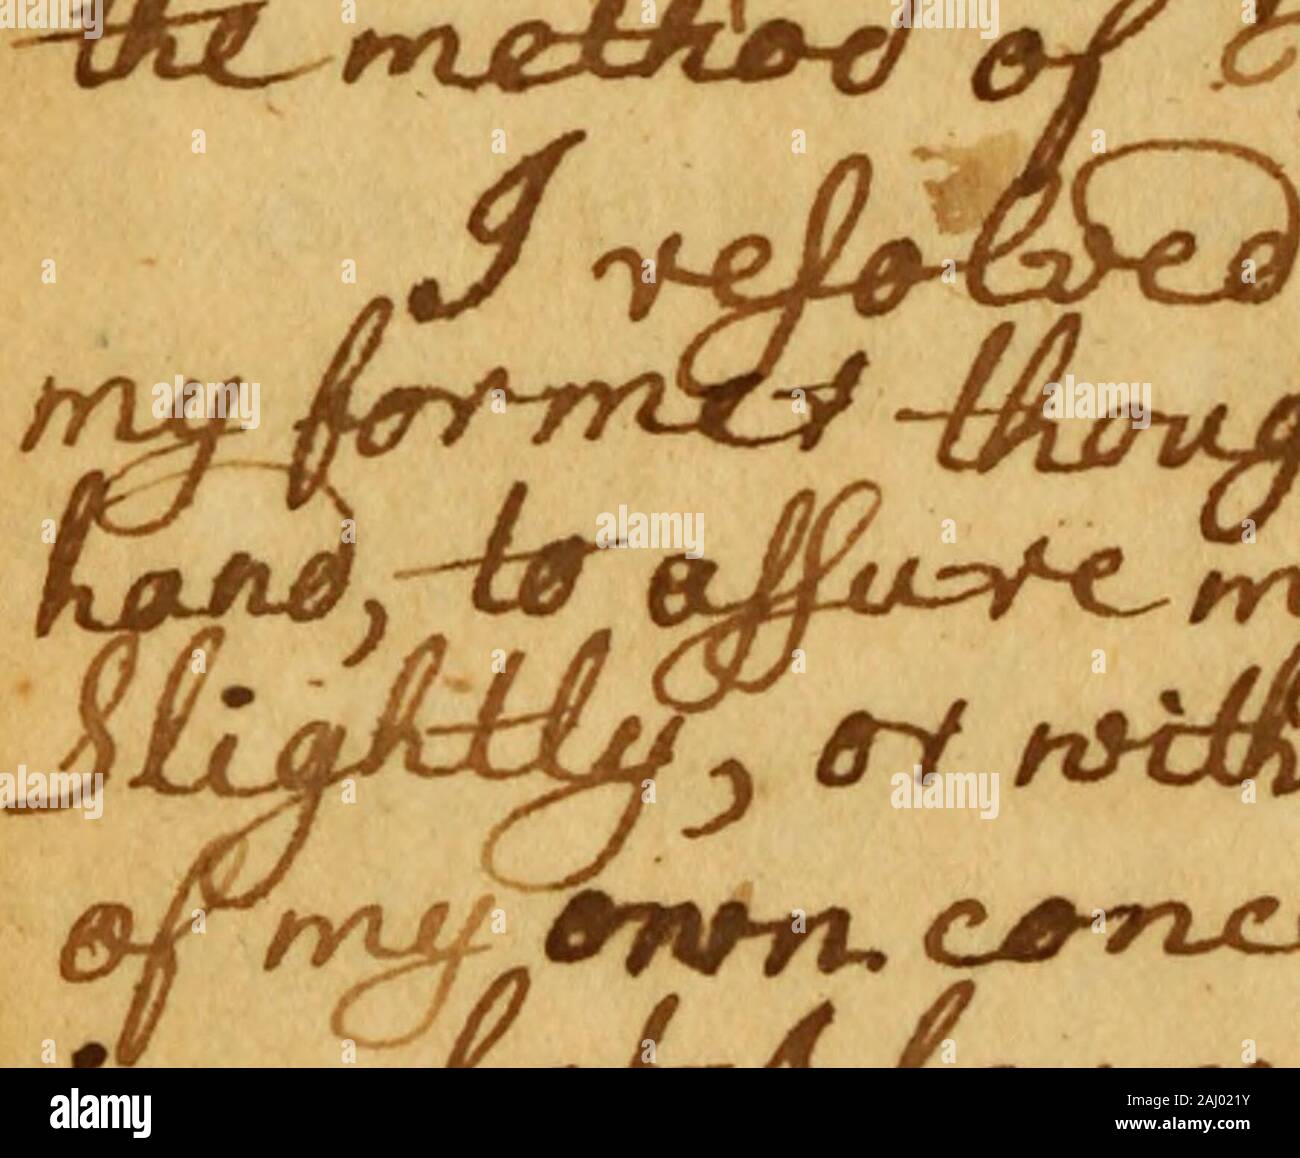 the method of
I reſolved
my former thoug
hand, to aſſure m
Slightly, or with
of my own conce
a
alamy
alamy
Image ID: 2AJ021Y
www.alamy.com